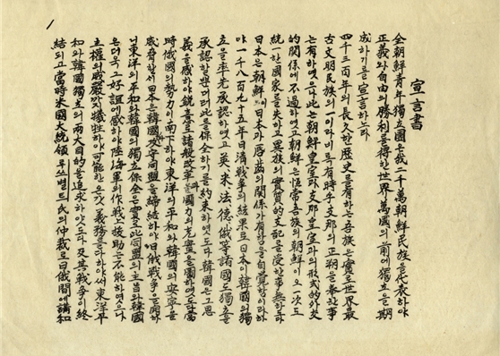 1
宣言書
全朝鮮靑年獨立團은我二千萬朝鮮民族을代表하야
正義와自由의勝利를得한世界萬國의前에獨立을期
成하기를宣言하노라
四千三百年의長久한歷史를有하는吾族은實로世界最
古文明民族의一이라비록有時乎支那의正朔을奉한事
는有하엿으나此는朝鮮皇室과支那皇室과의形式的外交
的關係에不過하엿고朝鮮은恒常吾族의朝鮮이오一次도
統一한國家를失하고異族의實質的支配를受한事無하도다
日本은朝鮮이日本과唇齒의關係가有함을自覺함이라하
야一千八百九十五年日淸戰爭의結果로日本이韓國의獨
立을率先承認하엿고英、米、法、德、俄等諸國도獨立을
承認할뿐더러此를保全하기를約束하엿도다韓國은그恩
義를感하야銳意로諸般改革과國力의充實을圖하엿도다當
時俄國의勢力이南下하야東洋의平和와韓國의安寧을
威脅할새日本은韓國과攻守同盟을締結하야日俄戰爭을開하
니東洋의平和와韓國의獨立保全은實로此同盟의主旨와韓國
은더욱그好誼에感하야陸海軍의作戰上援助는不能하엿으나
主權의威嚴까지犧牲하야可能한온갖義務를다하야써東洋平
和와韓國獨立의兩大目的을追求하얏도다及其戰爭이終
結되고當時米國大統領루쓰벨트氏의仲裁로日俄間에講和